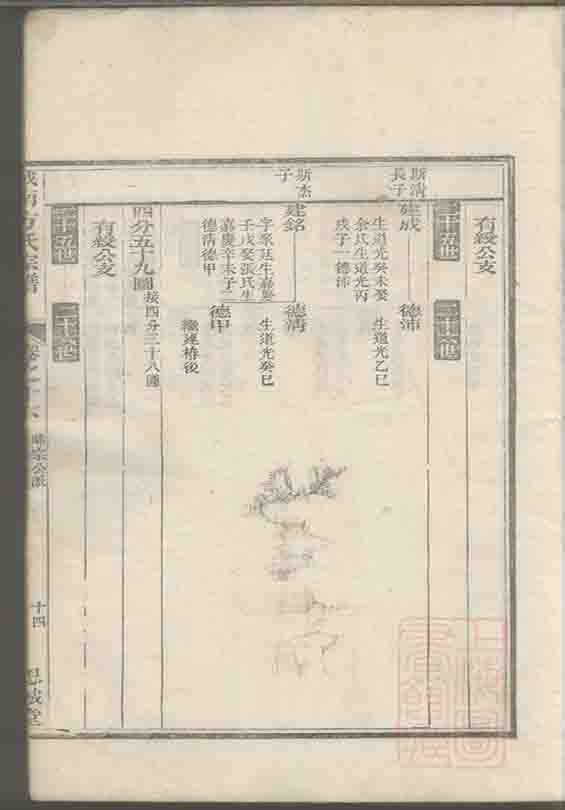 有綬公支
二十五世
二十六世
斯清
長子
建成
德沛
生道光癸未娶
余氏生道光丙
戌子一德沛
生道光乙巳
斯杰
子
建銘
德清
生嘉慶
壬戌娶張氏生
嘉慶辛未子二
德清德甲
生道光癸巳
德甲
繼建椿後
四分五十九圖
接四分三十八圖
有綬公支
二十五世
二十六世
方氏宗譜
宗公派
十四